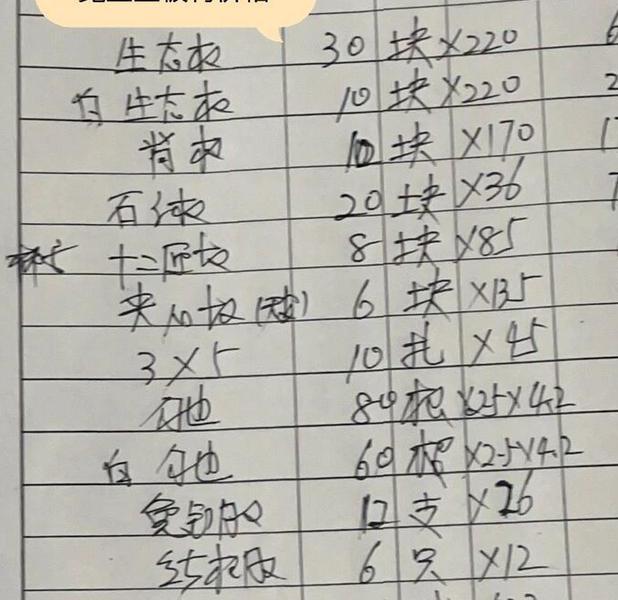 生态板 30 块×220
白 生态板 10 块×220
背板 10 块×170
石 板 20 块×36
十二 板 8 块×85
夹心板 6 块×135
3×5 10 扎×45
80 根×25×4.2
白 60 根×2.5×4.2
免钉胶 12 支×26
结构胶 6 只×12